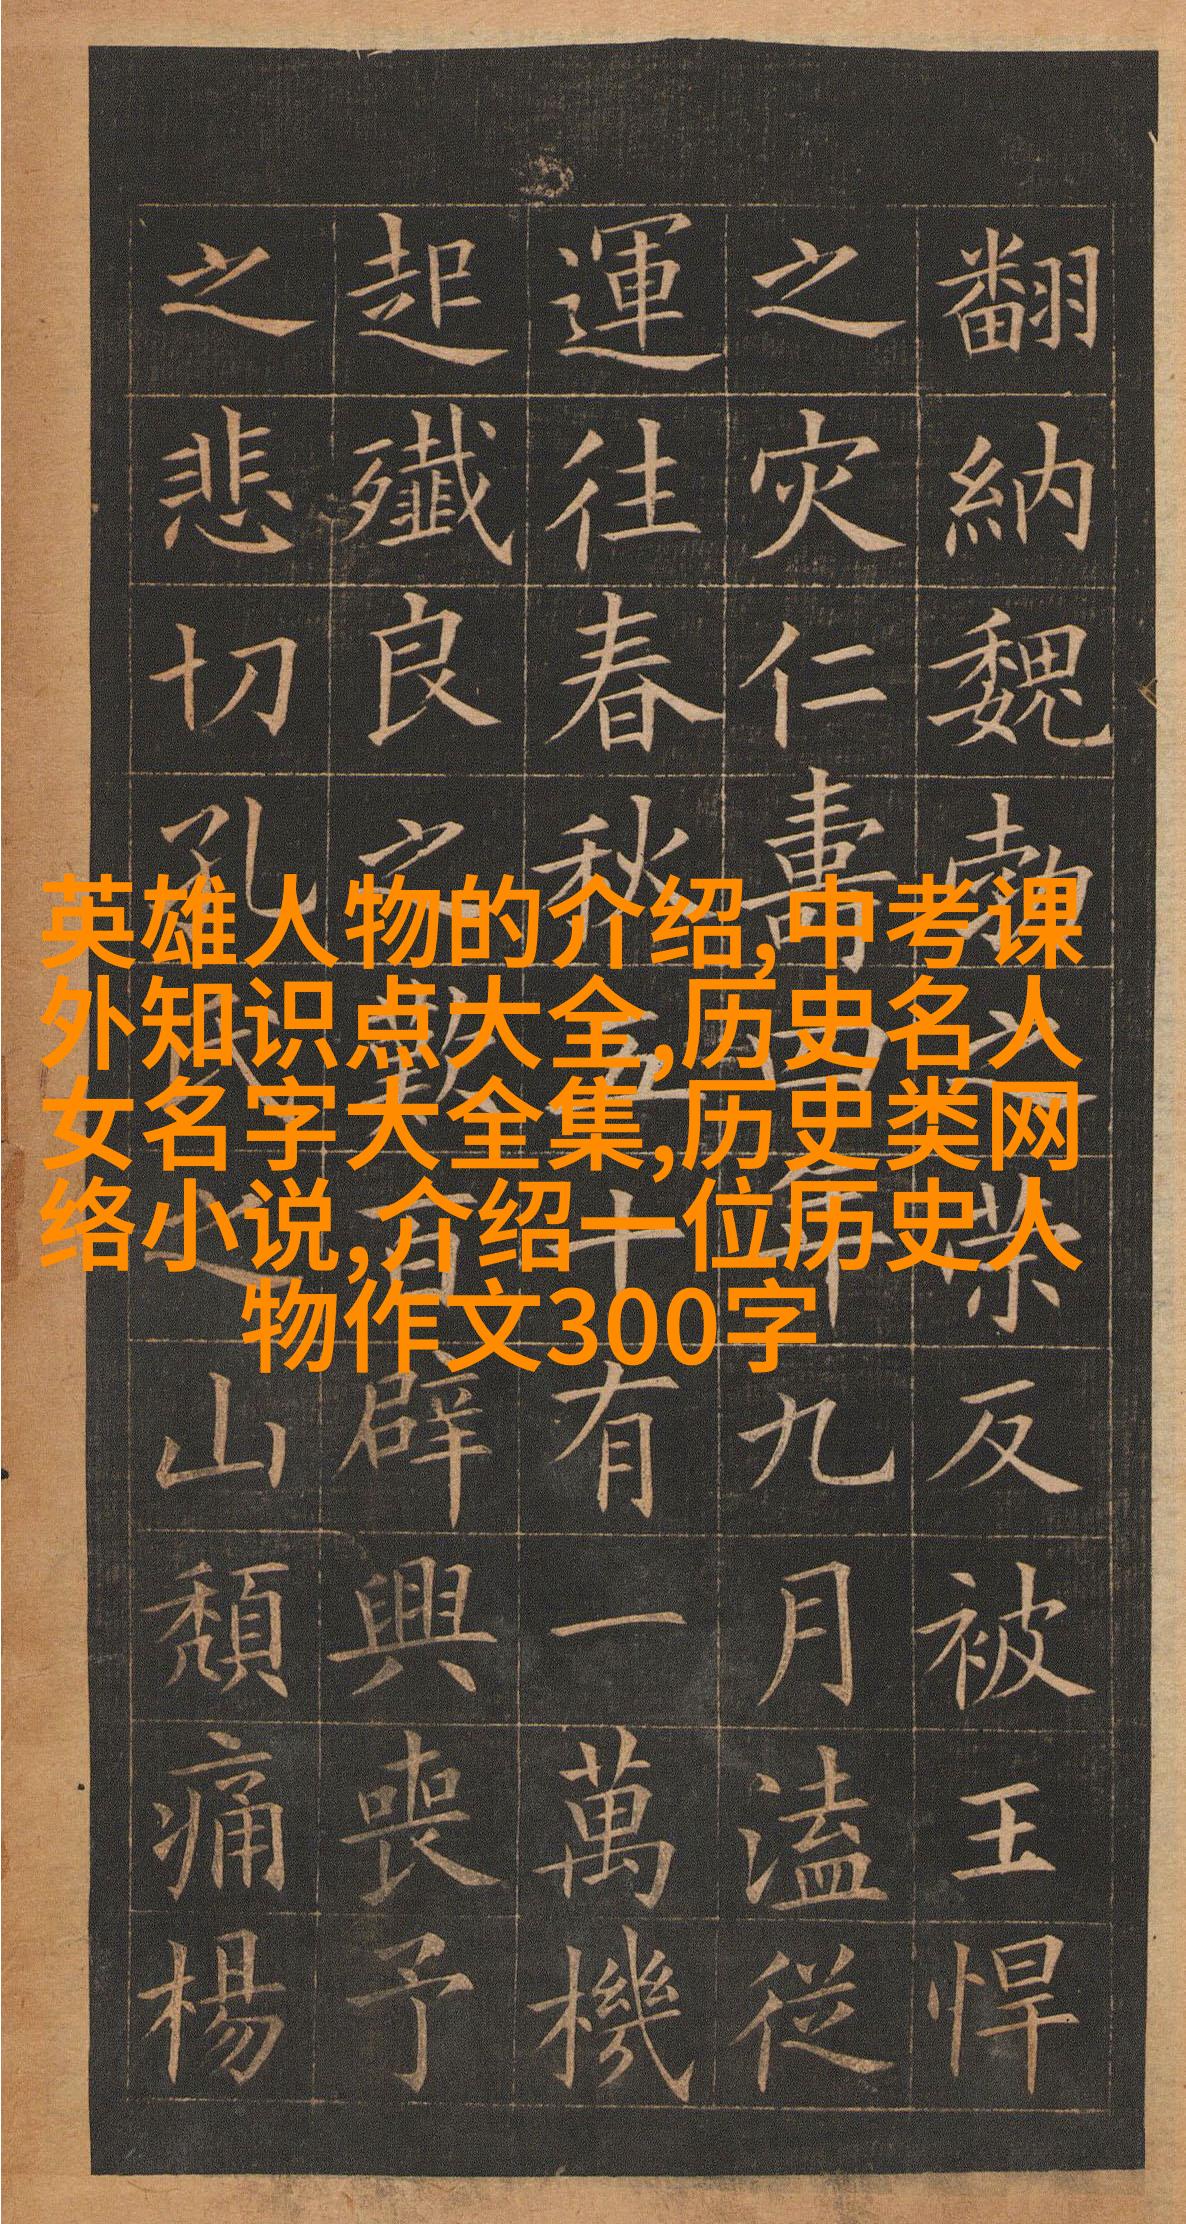 翻納魏勃之反被王悍
之灾仁壽四年九月溘從
運往春秋五十有一萬機
起殲良之歎百辟興喪予
之悲切孔氏之山頹痛楊
英雄人物的介绍,中考课
外知识点大全,历史名人
女名字大全集,历史类网
络小说,介绍一位历史人
物作文300字